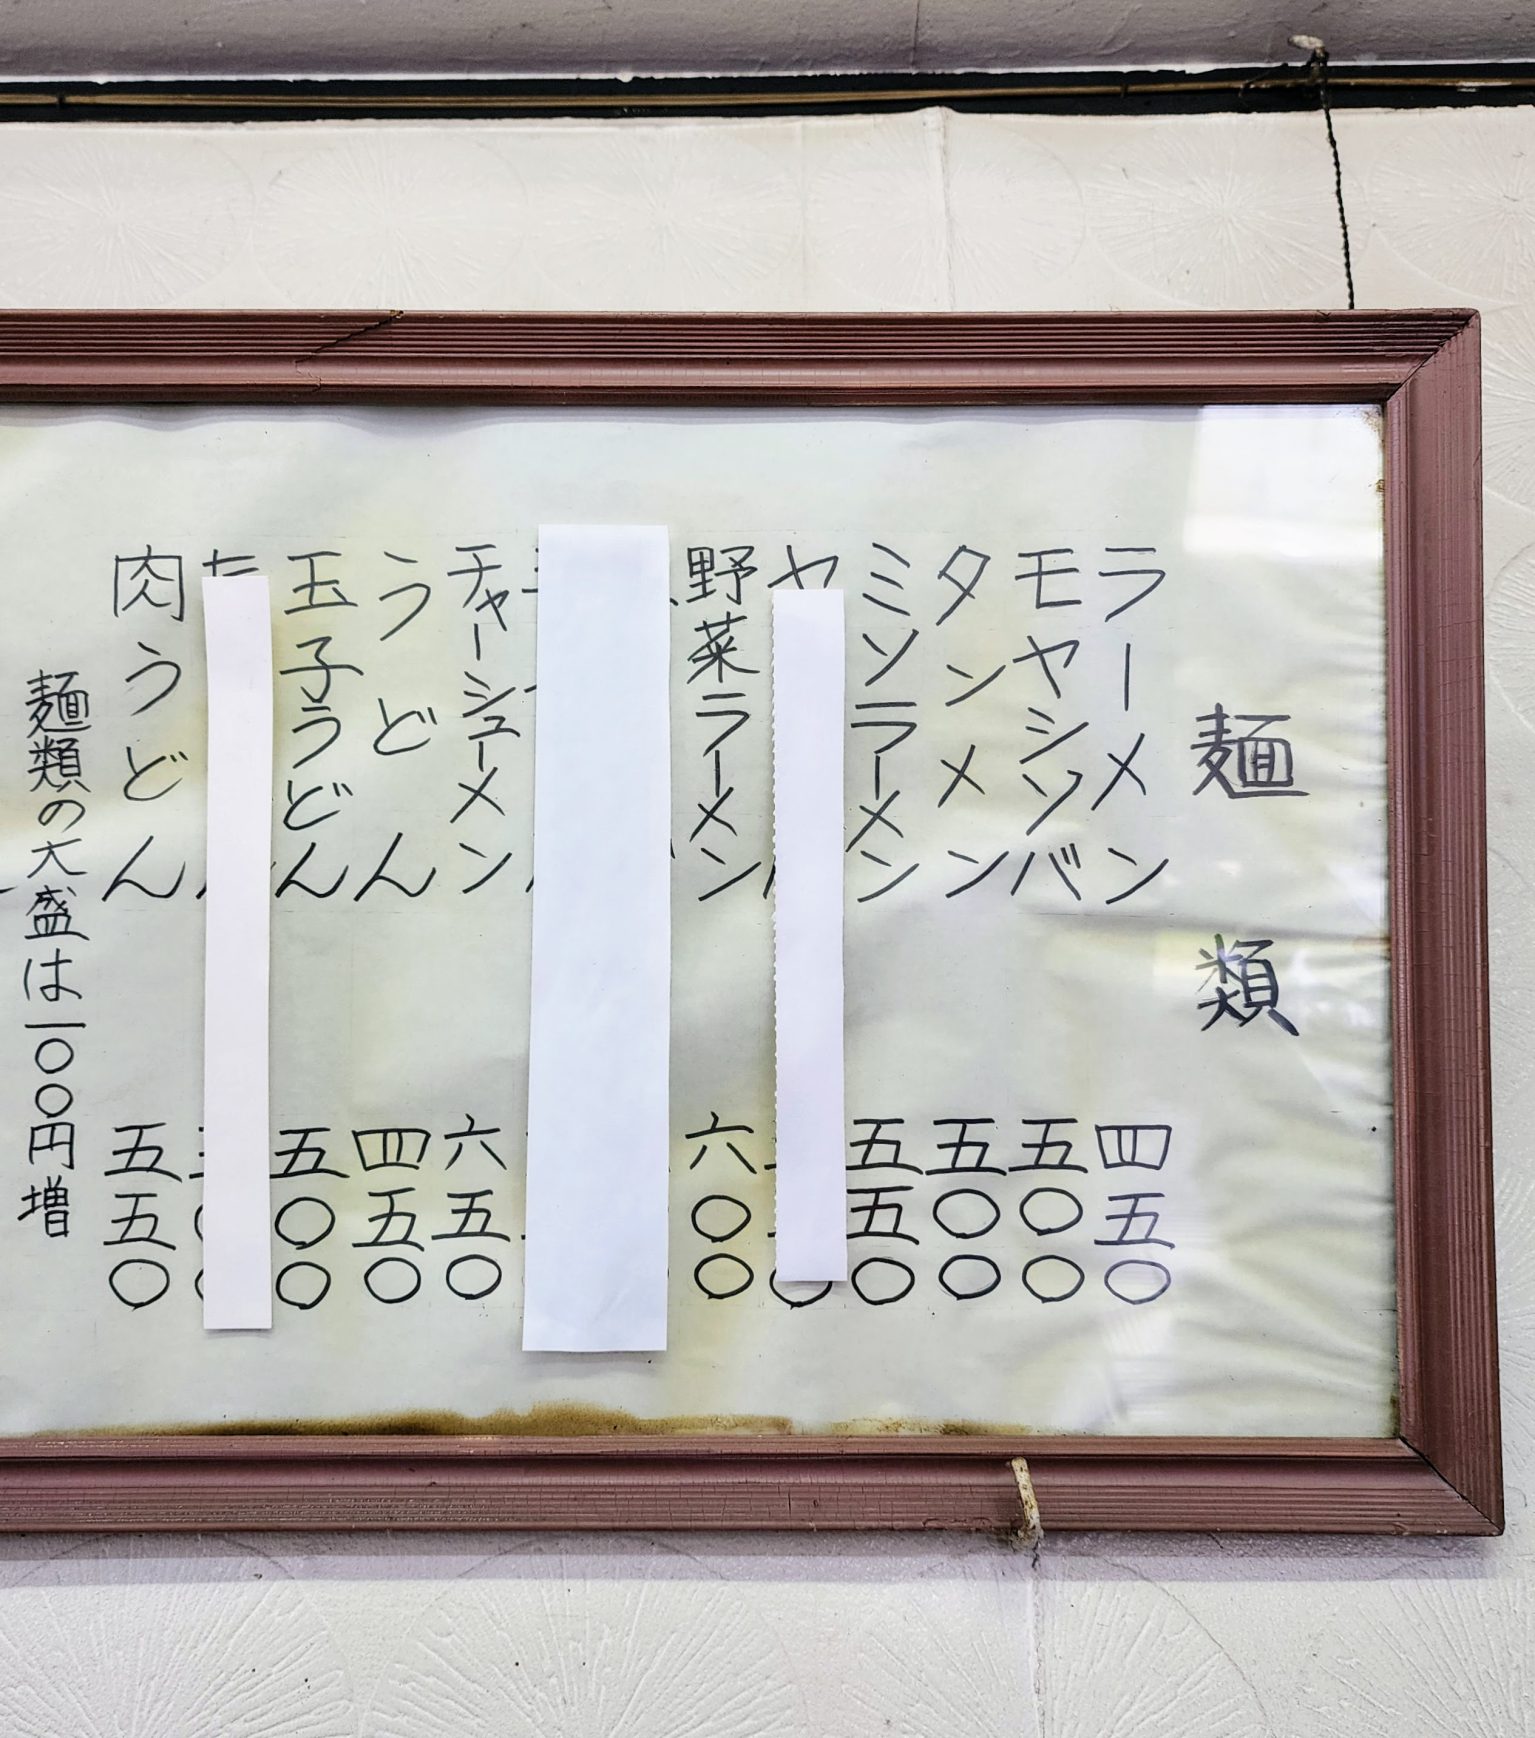 麺類
ラーメン 四五〇
モヤシソバ 五〇〇
タンメン 五〇〇
ミソラーメン 五五〇
野菜ラーメン 六〇〇
チャーシューメン 六五〇
うどん 四五〇
玉子うどん 五〇〇
肉うどん 五五〇
麺類の大盛は一〇〇円増